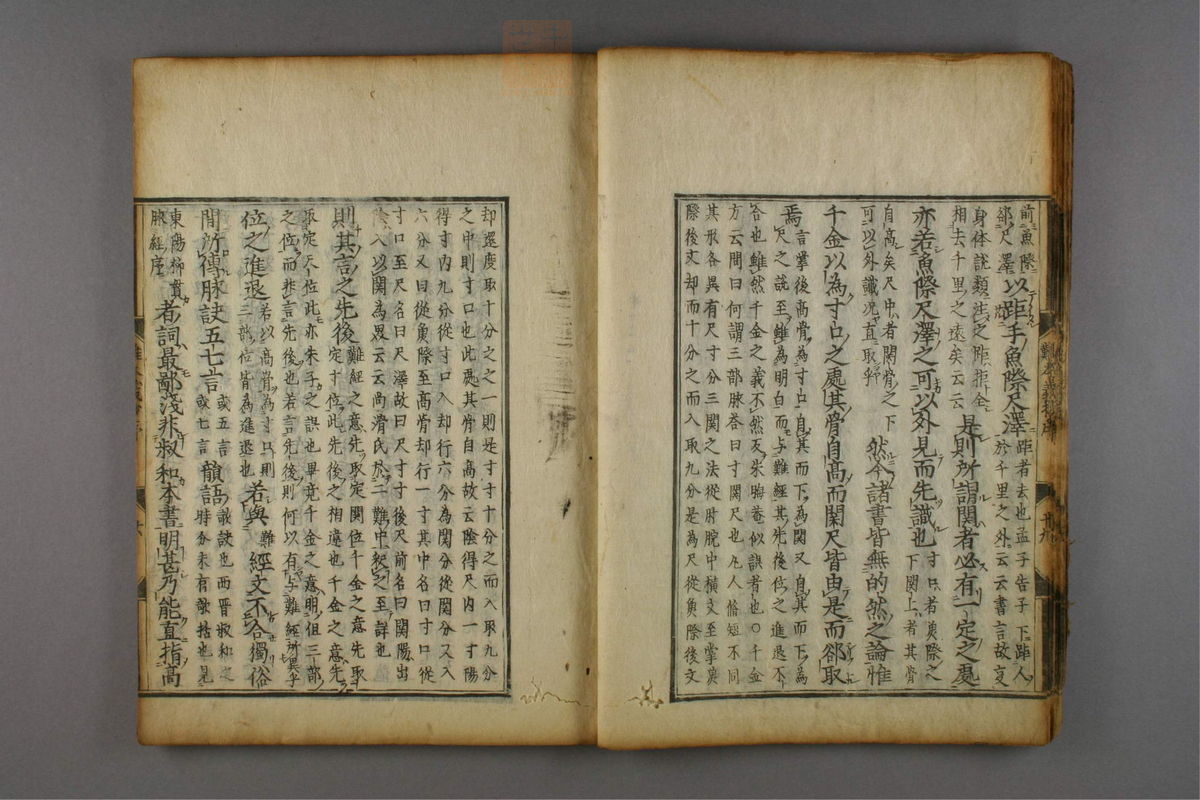 前魚際
郤尺澤以距手魚際尺澤距者去也孟子告子下距人
於千里之外云云書言故叓
身体說類注之距指會
相去千里之遠矣云云是則所謂関者必有一定之處
亦若魚際尺澤之可以外見而先識也寸口者魚際之
下関上者其骨
自高矣尺中者関骨之下
可以外識況直取乎然今諸書皆無的然之論惟
千金以為寸口之處其骨自高而関尺皆由是而郤取
焉言掌後高骨為寸口自其而下為関又自其而下為
尺之說至雖為明白而与難經其先後位之進退不
合也雖然千金之義不然反朱晦菴似誤者也〇千金
方云問曰何謂三部脉荅曰寸関尺也凢人脩短不同
其形各異有尺寸分三関之法從肘腕中横文至掌魚
際後文却而十分之而入取九分是為尺從魚際後文
却還度取十分之一則是寸寸十分之而入取九分
之中則寸口也此處其骨自高故云陰得尺内一寸陽
得寸内九分從寸口入却行六分為関分從関分又入
六分又曰從魚際至高骨却行一寸其中名曰寸口從
寸口至尺名曰尺澤故曰尺寸寸後尺前名曰関陽出
陰入以関為界云云尚滑氏於二難中釈之至詳也
則其言之先後難經之意先取定関位千金之意先取
定寸位此先後之相違也千金之意先
取定尺位此亦朱子之誤也畢竟千金之意明但三部
之位而非言先後也若言先後則何以有与難經所異乎
位之進退若以高骨為寸口則
三部位皆為進退也若與難經文不合獨俗
間所傳脉訣五七言或五言
或七言韻語歌訣也西晋叔和之
時分未有歌括也見
東陽柳貫
脉經序者詞最鄙淺非叔和本書明甚乃能直指高